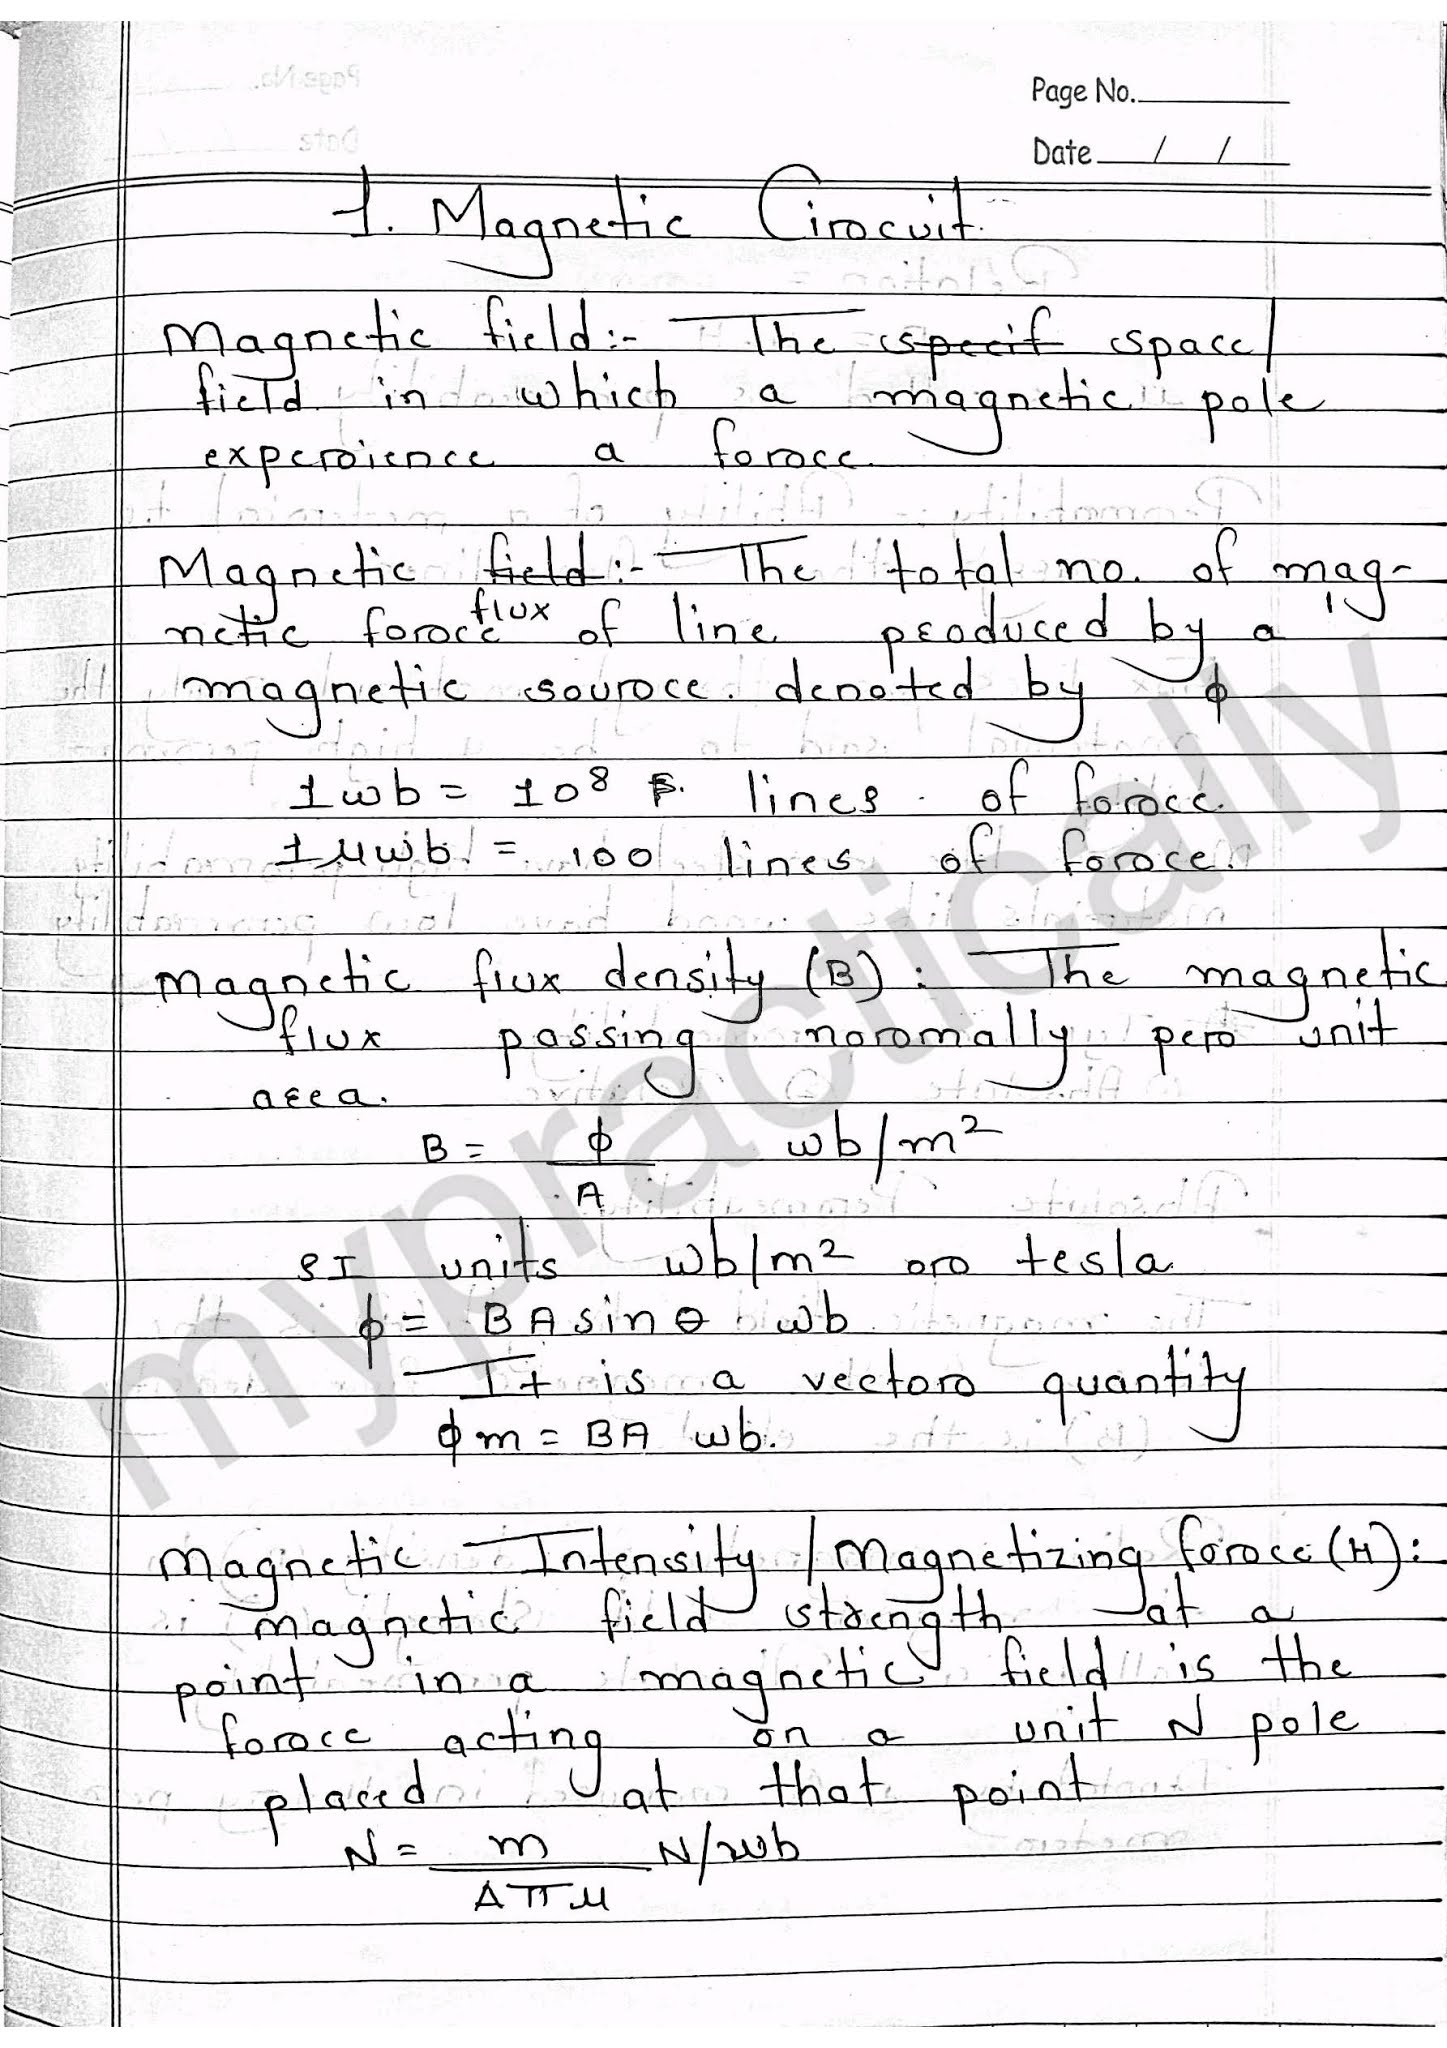 Page No.
Date / /
1. Magnetic Circuit.
Magnetic field:- The specif space/
field in which a magnetic pole
experience a force.
Magnetic field:- The total no. of mag-
flux
netic force of line produced by a
magnetic source. denoted by ϕ
1 wb = 10⁸ lines of force.
1 μwb. = 100 lines of force.
Magnetic flux density (B): The magnetic
flux passing normally per unit
area.
B = ϕ/A wb/m²
SI units wb/m² or tesla
ϕ = BA sin θ wb
It is a vector quantity
ϕm = BA wb.
Magnetic Intensity / Magnetizing force (H):
magnetic field strength at a
point in a magnetic field is the
force acting on a unit N pole
placed at that point
N = m/4πμ N/wb
mypractically